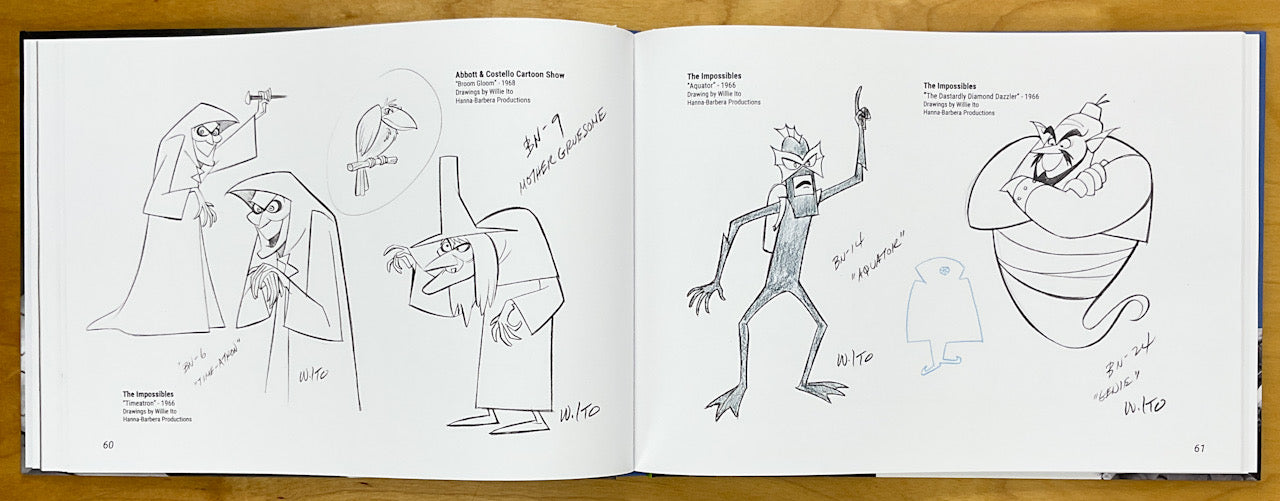 Abbott & Costello Cartoon Show
"Broom Gloom" - 1968
Drawings by Willie Ito
Hanna-Barbera Productions
BN-9
MOTHER GRUESOME
BN-6
"TIME-ATRON"
W. ITO
W. ITO
The Impossibles
"Timeatron" - 1966
Drawings by Willie Ito
Hanna-Barbera Productions
60
The Impossibles
"Aquator" - 1966
Drawing by Willie Ito
Hanna-Barbera Productions
The Impossibles
"The Dastardly Diamond Dazzler" - 1966
Drawings by Willie Ito
Hanna-Barbera Productions
BN-14
"AQUATOR"
W. ITO
BN-24
"GENIE"
W. ITO
61